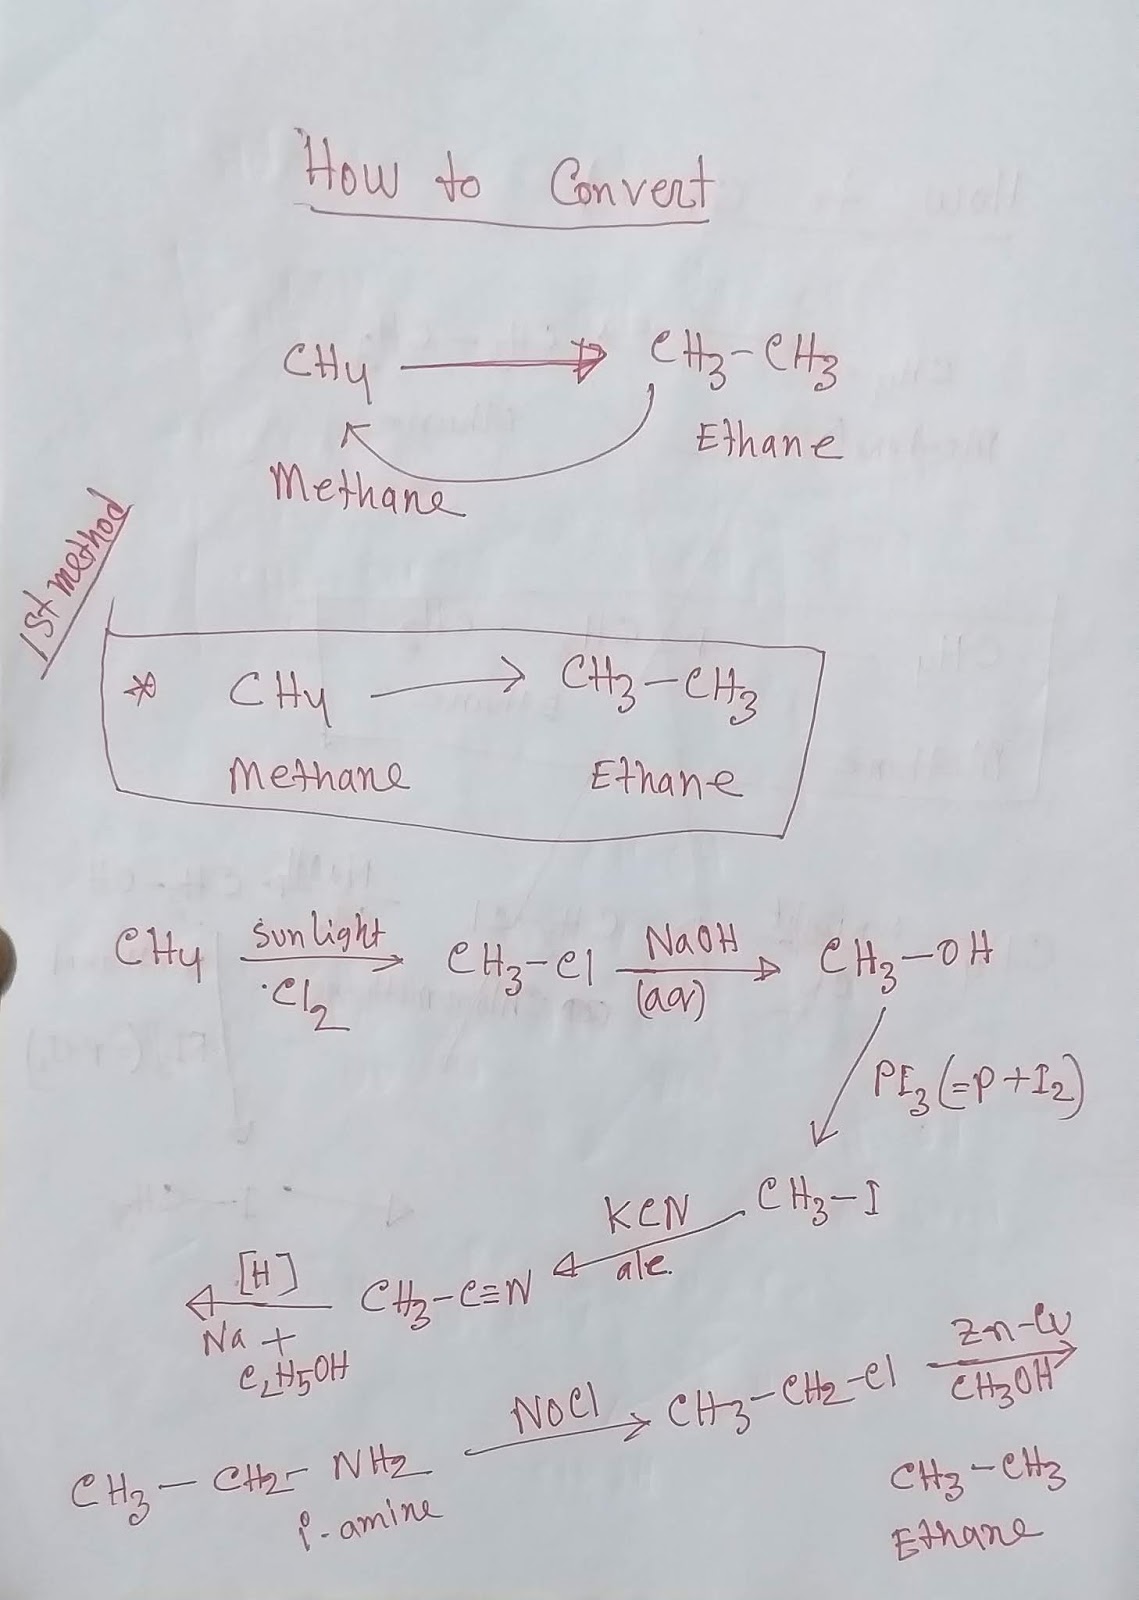 How to Convert
CH4 → CH3-CH3
Ethane
Methane
1st method
* CH4 → CH3-CH3
Methane Ethane
CH4 sunlight Cl2 → CH3-Cl NaOH (aq) → CH3-OH
PI3 (=P+I2)
CH3-I
KCN
alc.
CH3-C≡N
[H]
Na +
C2H5OH
CH3-CH2-NH2 NOCl → CH3-CH2-Cl Zn-Cu CH3OH →
i-amine
CH3-CH3
Ethane